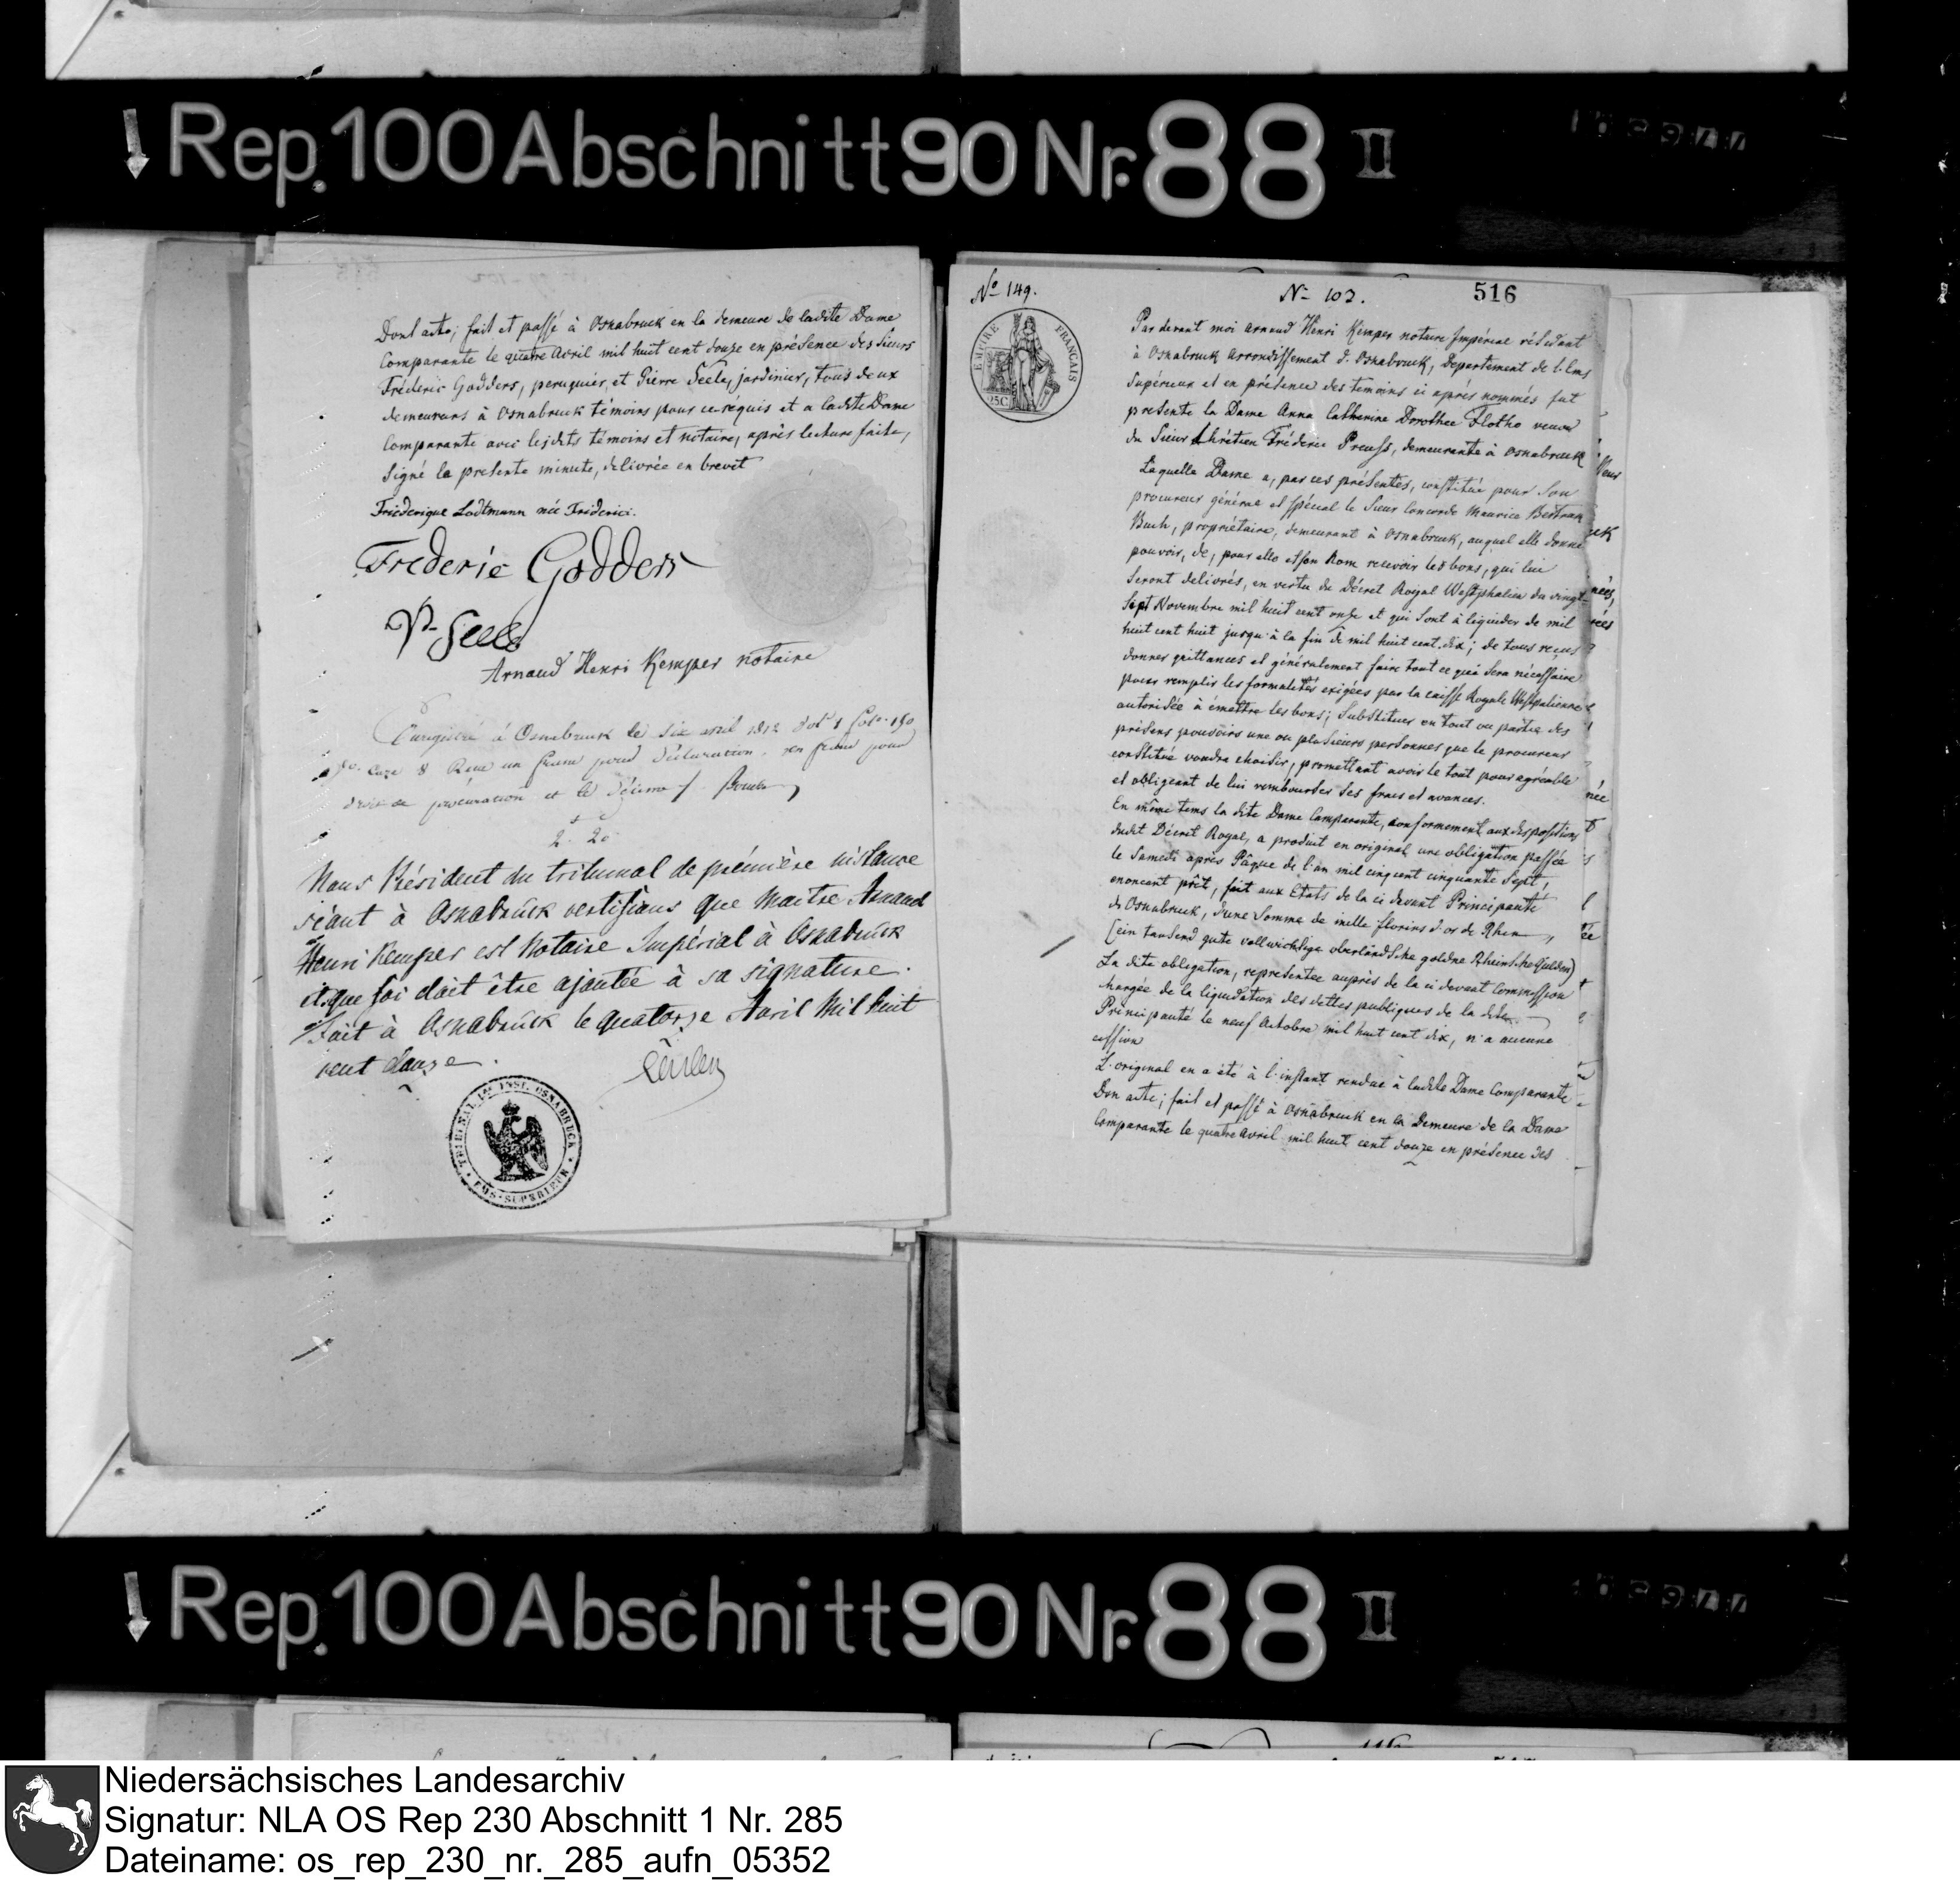 Rep. 100 Abschnitt 90 Nr. 88 II
Dont acte; fait et passé à Osnabruck en la demeure de ladite Dame
Comparante le quatre Avril mil huit cent douze en présence des Sieurs
Fréderic Godders, peruquier, et Pierre Seele, jardinier, tous deux
demeurans à Osnabruck témoins pour ce réquis et a ladite Dame
Comparante avec lesdits témoins et notaire, après lecture faite,
signé la presente minute, delivrée en brevet
Friederique Lodtmann née Friderici.
Frederic Godders
P. Seele
Arnaud Henri Kemper notaire
Enregistré à Osnabruck le six avril 1812 vol 1 folio 190
Reçu un franc pour déclaration. un franc pour
droit de procuration et le décime
2. 20
Nous Président du tribunal de prémière instance
séant à Osnabrück certifions que Maitre Arnaud
Henri Kemper est Notaire Impérial à Osnabrück
et que foi doit être ajoutée à sa signature.
Fait à Osnabrück le quatorze Avril Mil huit
cent douze.
TRIBUNAL 1re INST. OSNABRUCK
EMS-SUPERIEUR
No 149.
No 102.
516
EMPIRE FRANÇAIS
25C
Par devant moi Arnaud Henri Kemper notaire Impérial résidant
à Osnabruck Arrondissement d'Osnabruck, Departement de l'Ems
Supérieur et en présence des temoins ci après nommés fut
presente la Dame Anna Catherine Dorothee Flotho veuve
du Sieur Chrétien Fréderic Preuss, demeurante à Osnabruck
Laquelle Dame a, par ces présentes, constitué pour son
procureur général et spécial le Sieur Concorde Maurice Bertram
Buch, propriétaire, demeurant à Osnabruck, auquel elle donne
pouvoir, de, pour elle et son Nom recevoir les bons, qui lui
seront delivrés, en vertu du Décret Royal Westphalien du vingt
Sept Novembre mil huit cent onze et qui sont à liquider de mil
huit cent huit jusqu'à la fin de mil huit cent dix; de tous reçus
donner quittances et généralement faire tout ce qui sera nécessaire
pour remplir les formalités exigées par la caisse Royale Westphalienne
autorisée à émettre les bons; substituer en tout ou partie des
présens pouvoirs une ou plusieurs personnes que le procureur
constitué voudra choisir, promettant avoir le tout pour agréable
et obligeant de lui rembourser ses frais et avances.
En même tems la dite Dame Comparante, conformement aux dispositions
dudit Décret Royal, a produit en original une obligation passée
le Samedi après Pâque de l'an mil cinq cent cinquante Sept,
enoncant prêt, fait aux Etats de la ci devant Principauté
de Osnabruck, d'une Somme de mille florins d'or de Rhin
(ein tausend gute vollwichtige oberländische goldne Rheinsche Gulden)
La dite obligation, representée auprès de la ci devant Commission
chargée de la liquidation des dettes publiques de la dite
Principauté le neuf Octobre mil huit cent dix, n'a aucune
cession
L'original en a été à l'instant rendue à ladite Dame Comparante
Don acte; fait et passé à Osnabruck en la Demeure de la Dame
Comparante le quatre Avril mil huit cent douze en présence des
Rep. 100 Abschnitt 90 Nr. 88 II
Niedersächsisches Landesarchiv
Signatur: NLA OS Rep 230 Abschnitt 1 Nr. 285
Dateiname: os_rep_230_nr._285_aufn_05352